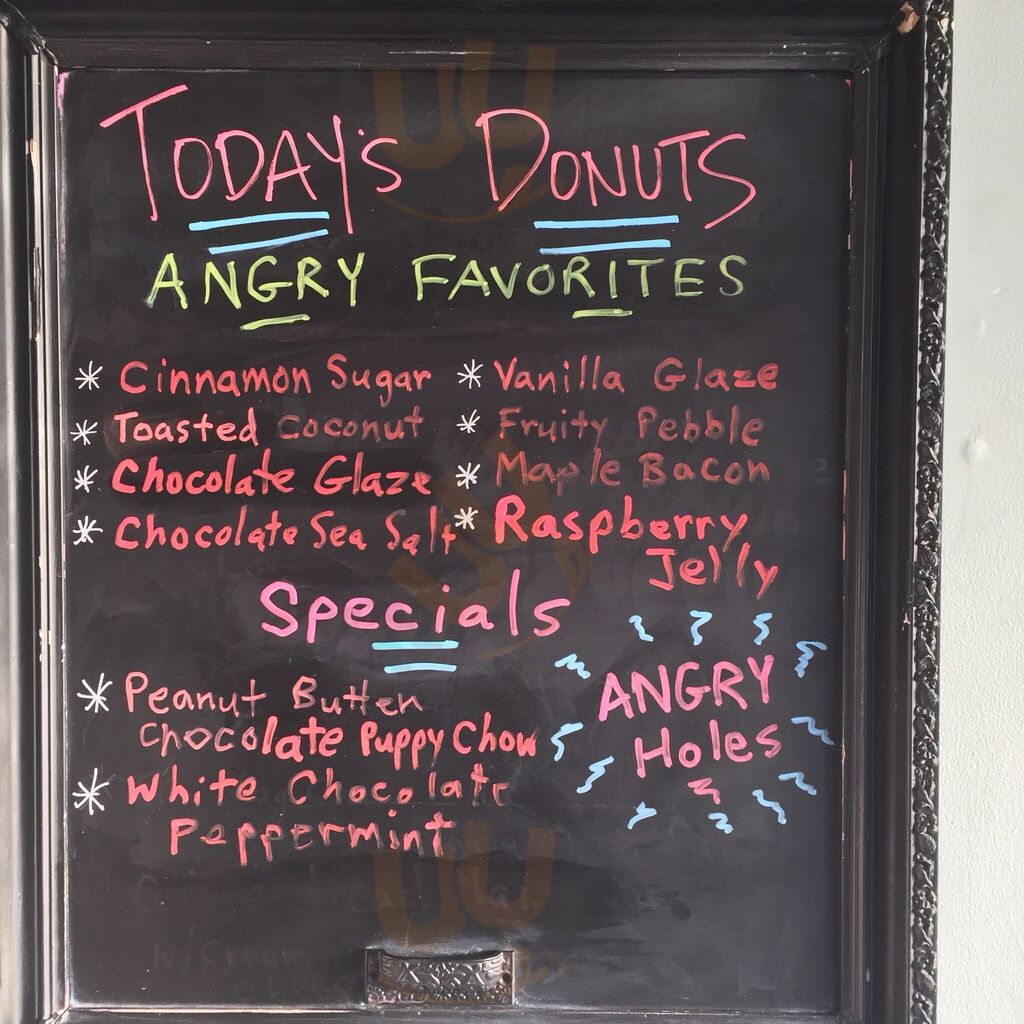 TODAY'S DONUTS
ANGRY FAVORITES
* Cinnamon Sugar
* Toasted Coconut
* Chocolate Glaze
* Chocolate Sea Salt
* Vanilla Glaze
* Fruity Pebble
* Maple Bacon
* Raspberry
Jelly
Specials
* Peanut Butter
Chocolate Puppy Chow
* White Chocolate
Peppermint
ANGRY
Holes
w/ Cream